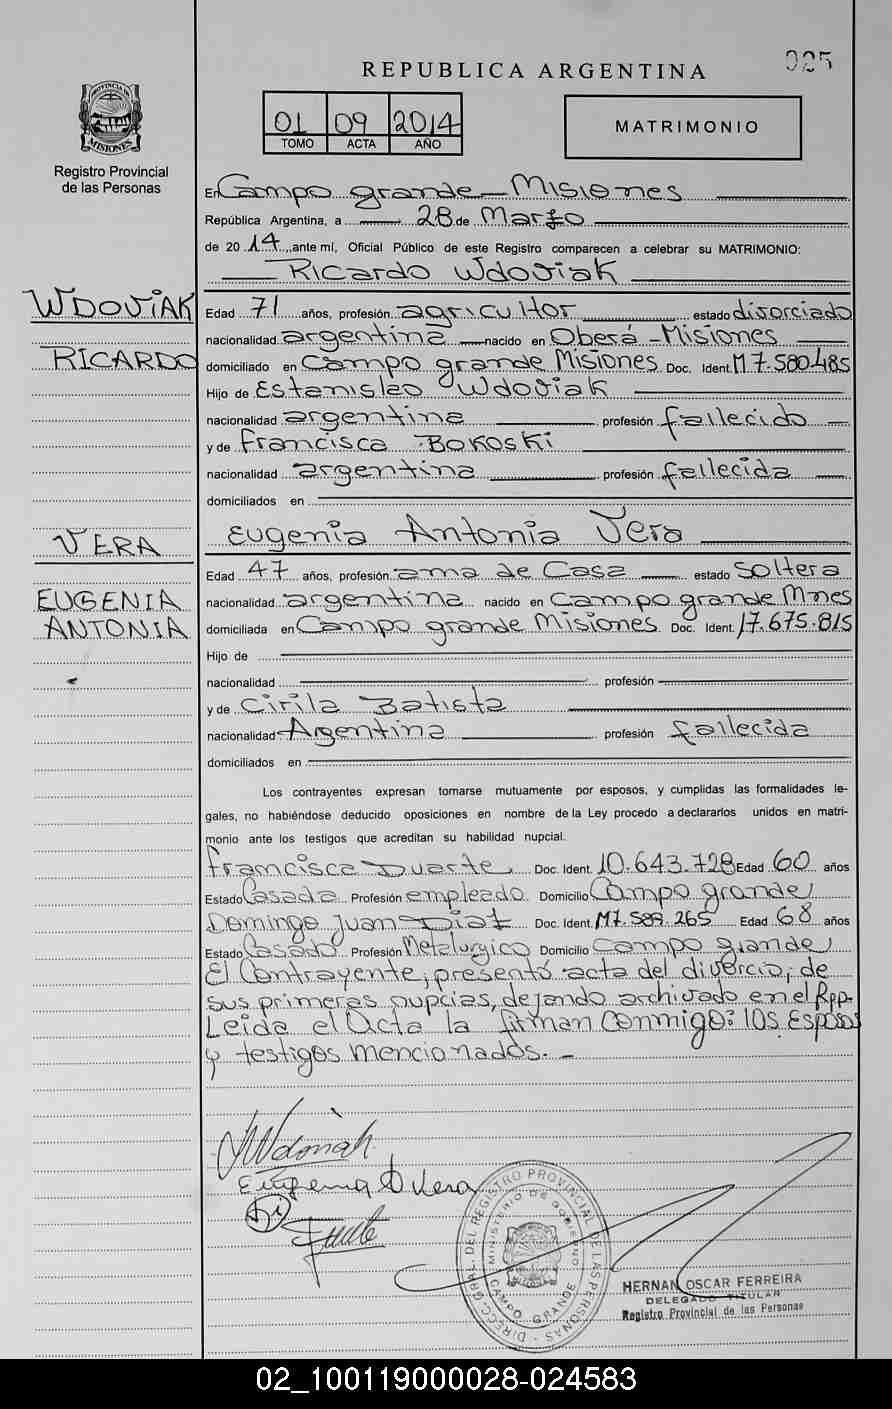 025
REPUBLICA ARGENTINA
01 09 2014
TOMO ACTA AÑO
MATRIMONIO
PROVINCIA DE
MISIONES
Registro Provincial
de las Personas
En Campo grande - Misiones
República Argentina, a 28 de Marzo
de 2014, ante mí, Oficial Público de este Registro comparecen a celebrar su MATRIMONIO:
Ricardo Wdoviak
WDOVIAK
RICARDO
Edad 71 años, profesión agricultor estado divorciado
nacionalidad argentina nacido en Oberá - Misiones
domiciliado en Campo grande Misiones Doc. Ident. M7.580.485
Hijo de Estanisleo Wdoviak
nacionalidad argentina profesión fallecido
y de Francisca Bokoski
nacionalidad argentina profesión fallecida
domiciliados en
Eugenia Antonia Vera
VERA
EUGENIA
ANTONIA
Edad 47 años, profesión ama de Casa estado Soltera
nacionalidad argentina nacido en Campo grande Mnes
domiciliada en Campo grande Misiones Doc. Ident. 17.675.815
Hijo de
nacionalidad profesión
y de Cirila Batista
nacionalidad Argentina profesión fallecida
domiciliados en
Los contrayentes expresan tomarse mutuamente por esposos, y cumplidas las formalidades le-
gales, no habiéndose deducido oposiciones en nombre de la Ley procedo a declararlos unidos en matri-
monio ante los testigos que acreditan su habilidad nupcial.
Francisca Duarte Doc. Ident. 10.643.728 Edad 60 años
Estado Casada Profesión empleado Domicilio Campo grande
Domingo Juan Diaz Doc. Ident. M7.589.265 Edad 68 años
Estado Casado Profesión Metalurgico Domicilio Campo grande
El Contrayente, presentó acta del divorcio, de
sus primeras nupcias, dejando archivado en el Rpp.
Leida el Acta la firman conmigo: los Esposos
y testigos mencionados. -
Wdoviak
Eugenia A Vera
DIRECC. GRAL. DEL REGISTRO PROVINCIAL DE LAS PERSONAS
MINISTERIO DE GOBIERNO
CAMPO GRANDE
HERNAN OSCAR FERREIRA
DELEGADO TITULAR
Registro Provincial de las Personas
02_100119000028-024583